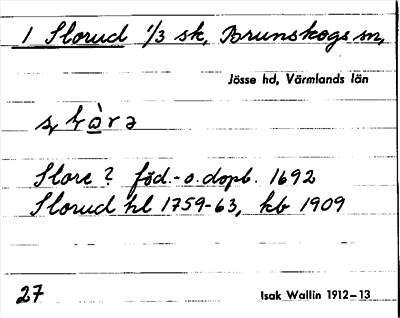 1 Slorud 1/3 sk, Brunskogs sn,
Jösse hd, Värmlands län
Slore? föd.-o.dopb. 1692
Slorud hl 1759-63, kb 1909
27
Isak Wallin 1912-13